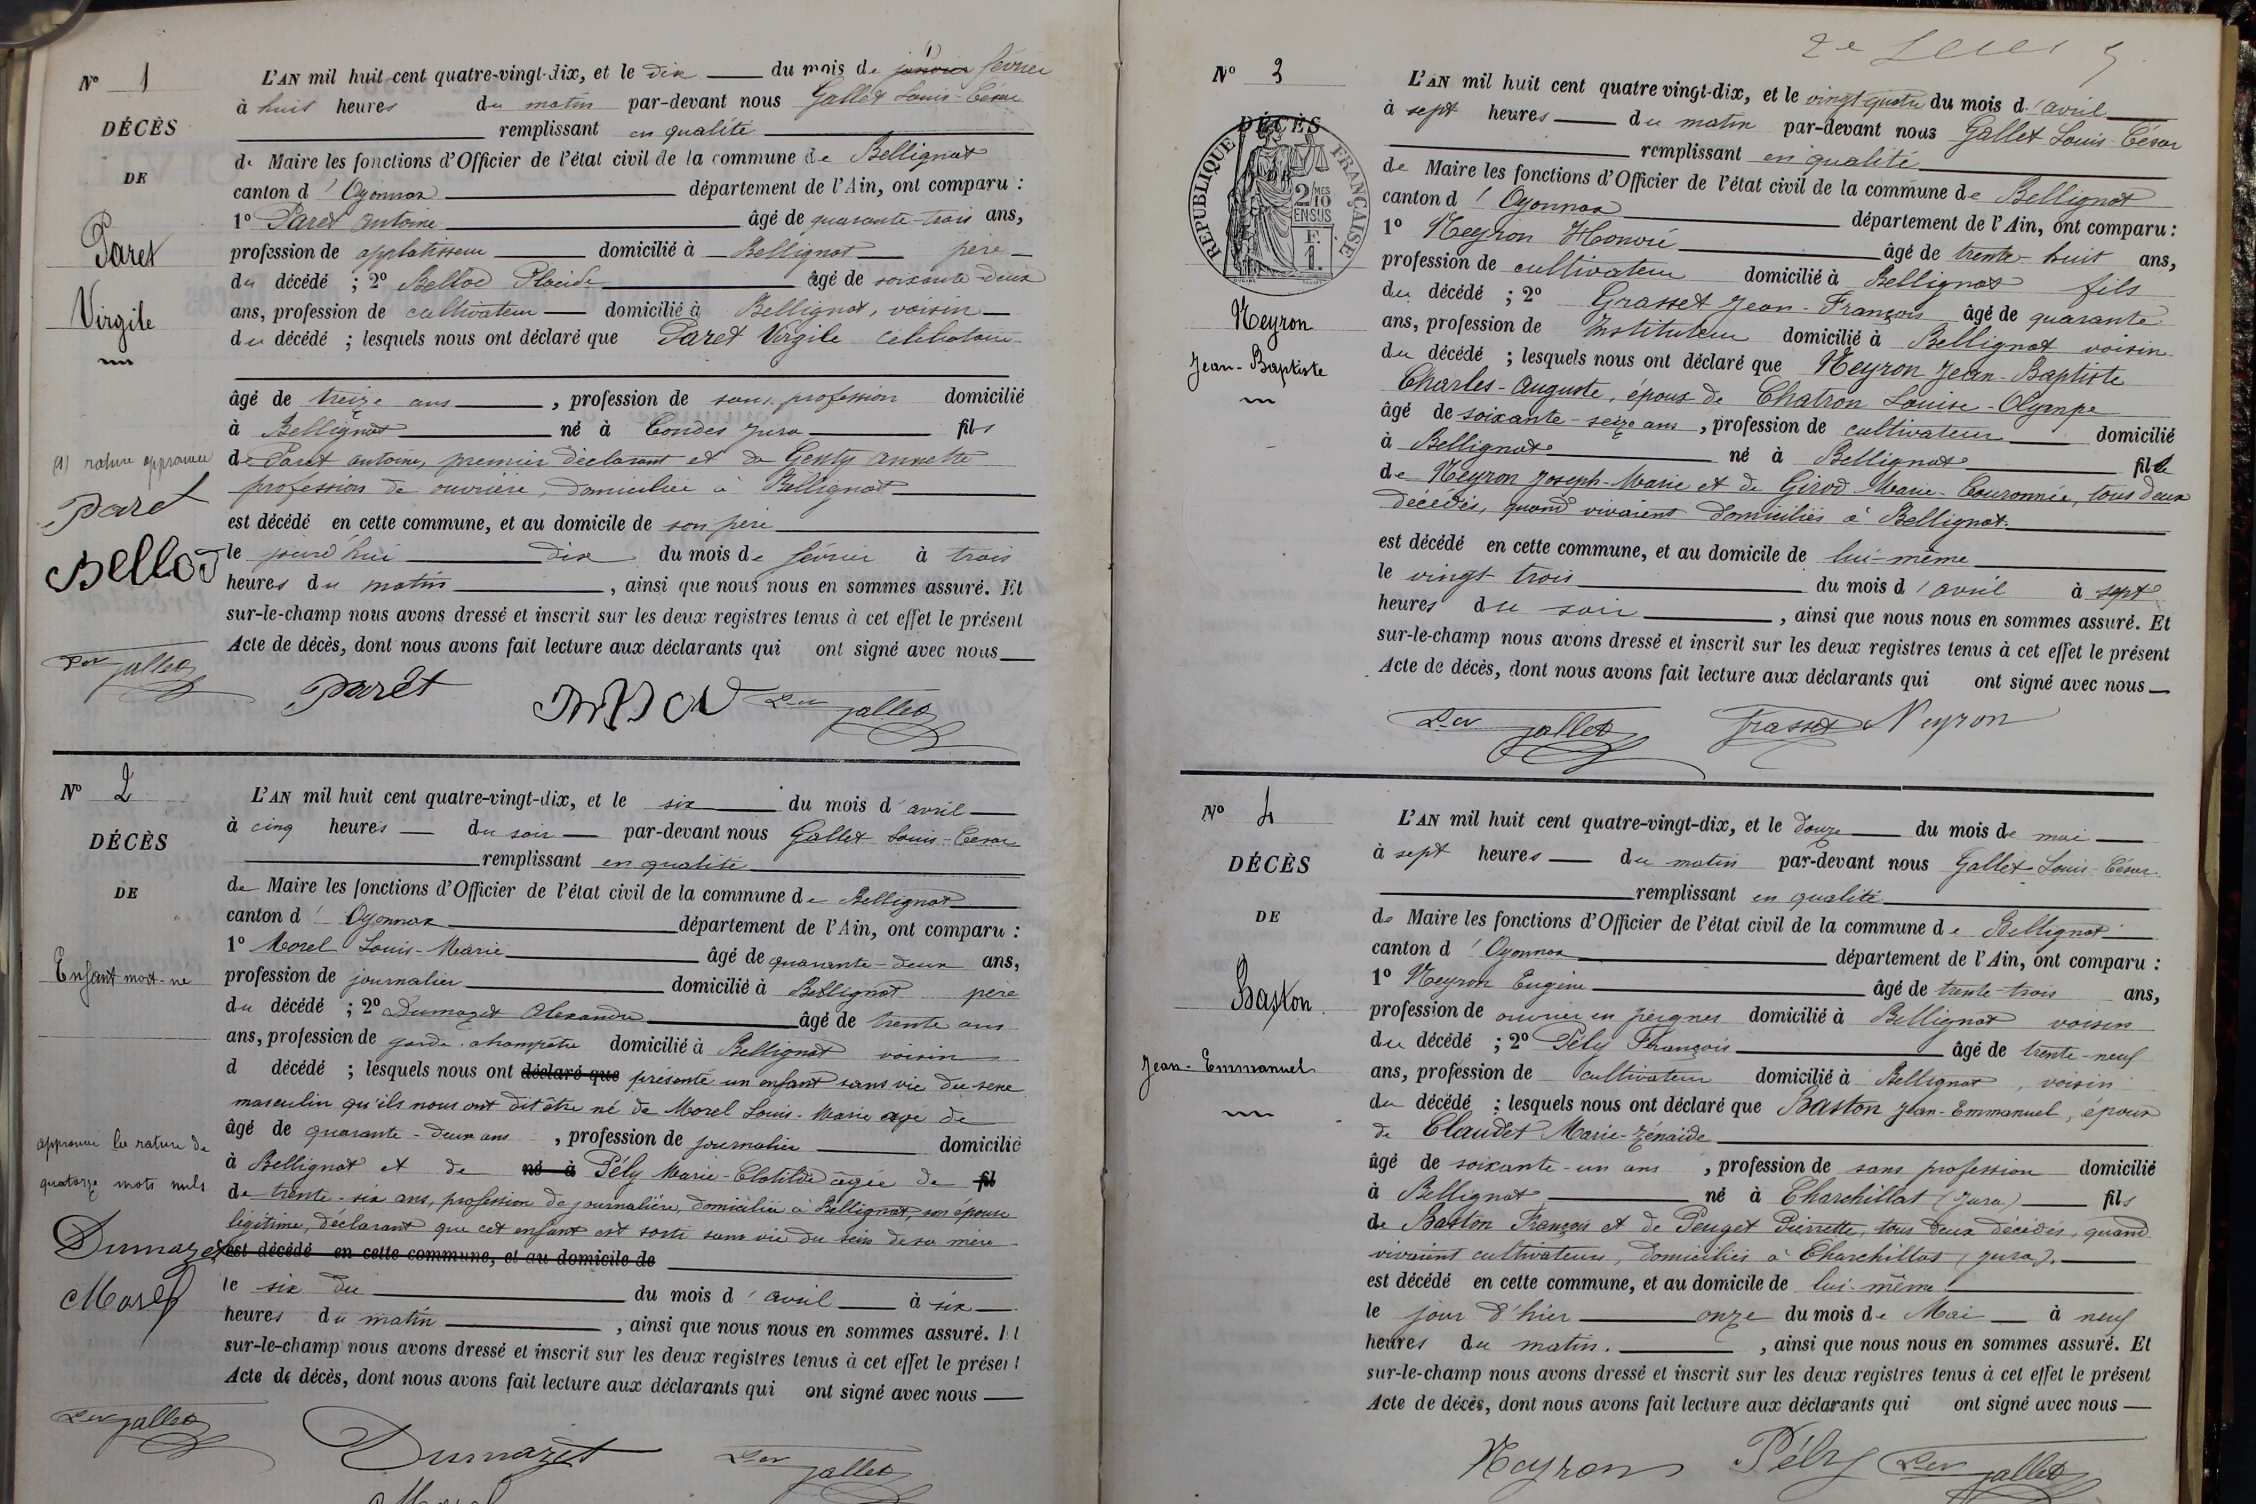 N° 1
DÉCÈS
DE
Paret
Virgile
(1) rature approuvée
Paret
Bellod
Gallet
L'AN mil huit cent quatre-vingt-dix, et le dix du mois de janvier (1) février
à huit heures du matin par-devant nous Gallet Louis-César
remplissant en qualité
de Maire les fonctions d'Officier de l'état civil de la commune de Bellignat
canton d'Oyonnax département de l'Ain, ont comparu :
1° Paret Antoine âgé de quarante-trois ans,
profession de applatisseur domicilié à Bellignat père
du décédé ; 2° Bellod Placide âgé de soixante-deux
ans, profession de cultivateur domicilié à Bellignat, voisin
du décédé ; lesquels nous ont déclaré que Paret Virgile célibataire
âgé de treize ans, profession de sans profession domicilié
à Bellignat né à Condes Jura fils
de Paret Antoine, premier déclarant et de Genty Annette
profession de ouvrière, domiciliée à Bellignat
est décédé en cette commune, et au domicile de son père
le jourd'hui dix du mois de février à trois
heures du matin, ainsi que nous nous en sommes assuré. Et
sur-le-champ nous avons dressé et inscrit sur les deux registres tenus à cet effet le présent
Acte de décès, dont nous avons fait lecture aux déclarants qui ont signé avec nous
Paret Gallet
N° 2
DÉCÈS
DE
Enfant mort-né
approuvé la rature de
quatorze mots nuls
Dumazet
Morel
Gallet
L'AN mil huit cent quatre-vingt-dix, et le six du mois d'avril
à cinq heures du soir par-devant nous Gallet Louis-César
remplissant en qualité
de Maire les fonctions d'Officier de l'état civil de la commune de Bellignat
canton d'Oyonnax département de l'Ain, ont comparu :
1° Morel Louis-Marie âgé de quarante-deux ans,
profession de journalier domicilié à Bellignat père
du décédé ; 2° Dumazet Alexandre âgé de trente ans
ans, profession de garde-champêtre domicilié à Bellignat voisin
d décédé ; lesquels nous ont déclaré que présenté un enfant sans vie du sexe
masculin qu'ils nous ont dit être né de Morel Louis-Marie agé de
âgé de quarante-deux ans, profession de journalier domicilié
à Bellignat et de né à Pély Marie-Clotilde âgée de fil
de trente-six ans, profession de journalière, domiciliée à Bellignat, son épouse
légitime, déclarant que cet enfant est sorti sans vie du sein de sa mère
est décédé en cette commune, et au domicile de
le six du du mois d'avril à six
heures du matin, ainsi que nous nous en sommes assuré. Et
sur-le-champ nous avons dressé et inscrit sur les deux registres tenus à cet effet le présent
Acte de décès, dont nous avons fait lecture aux déclarants qui ont signé avec nous
Dumazet Gallet
Morel
N° 3
DÉCÈS
RÉPUBLIQUE FRANÇAISE
2/10 MES
EN SUS
F.
1.
Neyron
Jean-Baptiste
L'AN mil huit cent quatre vingt-dix, et le vingt-quatre du mois d'avril
à sept heures du matin par-devant nous Gallet Louis-César
remplissant en qualité
de Maire les fonctions d'Officier de l'état civil de la commune de Bellignat
canton d'Oyonnax département de l'Ain, ont comparu :
1° Neyron Honoré âgé de trente-huit ans,
profession de cultivateur domicilié à Bellignat fils
du décédé ; 2° Grasset Jean-François âgé de quarante
ans, profession de Instituteur domicilié à Bellignat voisin
du décédé ; lesquels nous ont déclaré que Neyron Jean-Baptiste
Charles-Auguste, époux de Chatron Louise-Olympe
âgé de soixante-seize ans, profession de cultivateur domicilié
à Bellignat né à Bellignat fils
de Neyron Joseph-Marie et de Girod Marie-Couronnée, tous deux
décédés, quand vivaient domiciliés à Bellignat.
est décédé en cette commune, et au domicile de lui-même
le vingt-trois du mois d'avril à sept
heures du soir, ainsi que nous nous en sommes assuré. Et
sur-le-champ nous avons dressé et inscrit sur les deux registres tenus à cet effet le présent
Acte de décès, dont nous avons fait lecture aux déclarants qui ont signé avec nous
Gallet Grasset Neyron
N° 4
DÉCÈS
DE
Baston
Jean-Emmanuel
L'AN mil huit cent quatre-vingt-dix, et le douze du mois de mai
à sept heures du matin par-devant nous Gallet Louis-César
remplissant en qualité
de Maire les fonctions d'Officier de l'état civil de la commune de Bellignat
canton d'Oyonnax département de l'Ain, ont comparu :
1° Neyron Eugène âgé de trente-trois ans,
profession de ouvrier en peignes domicilié à Bellignat voisin
du décédé ; 2° Pély François âgé de trente-neuf
ans, profession de cultivateur domicilié à Bellignat, voisin
du décédé ; lesquels nous ont déclaré que Baston Jean-Emmanuel, époux
de Claudet Marie-Zénaïde
âgé de soixante-un ans, profession de sans profession domicilié
à Bellignat né à Charchillat (Jura) fils
de Baston François et de Peuget Pierrette, tous deux décédés, quand
vivaient cultivateurs, domiciliés à Charchillat (Jura).
est décédé en cette commune, et au domicile de lui-même
le jour d'hier onze du mois de Mai à neuf
heures du matin., ainsi que nous nous en sommes assuré. Et
sur-le-champ nous avons dressé et inscrit sur les deux registres tenus à cet effet le présent
Acte de décès, dont nous avons fait lecture aux déclarants qui ont signé avec nous
Neyron Pély Gallet